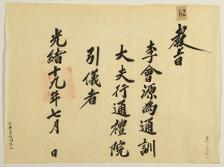 敎旨
李會源爲通訓
大夫行通禮院
引儀者
光緖十九年七月　日
62